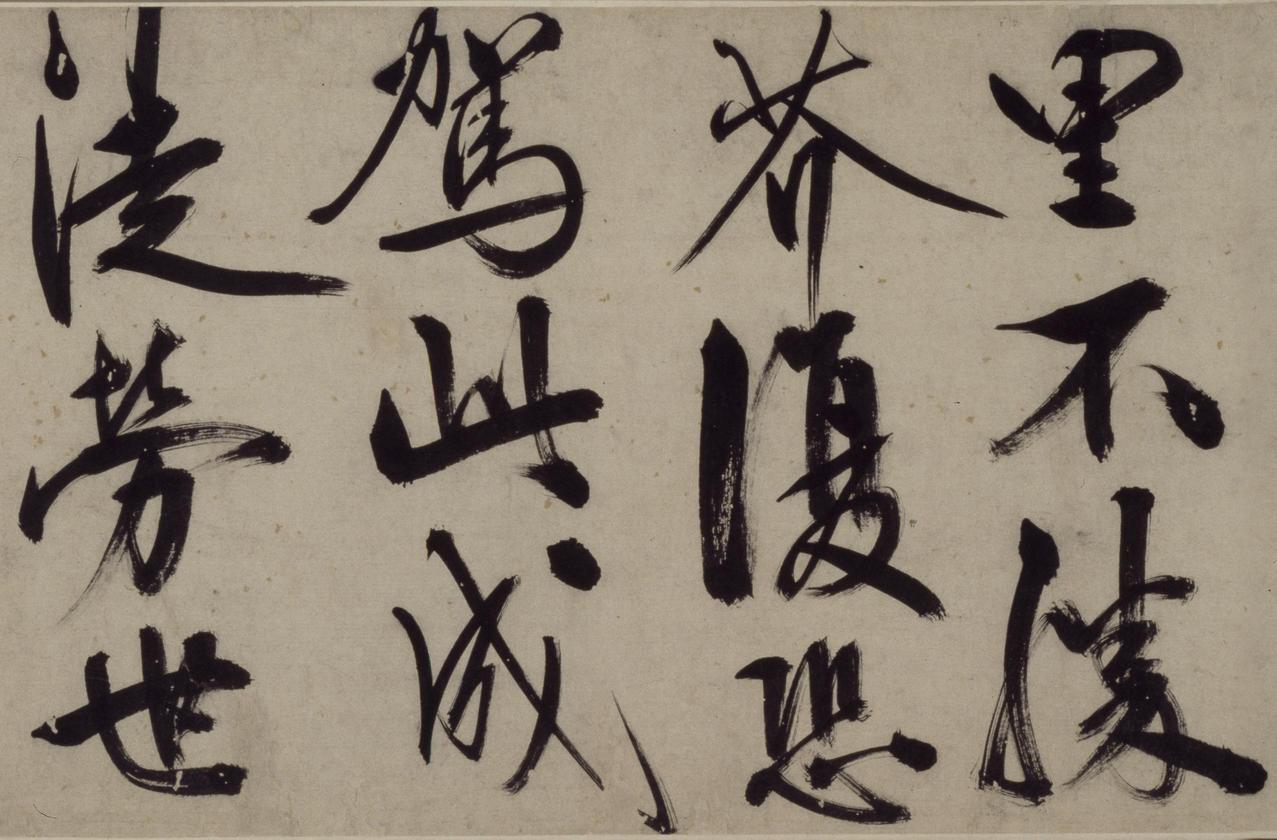 里不勝
芥復恐
駕此成
徒勞世